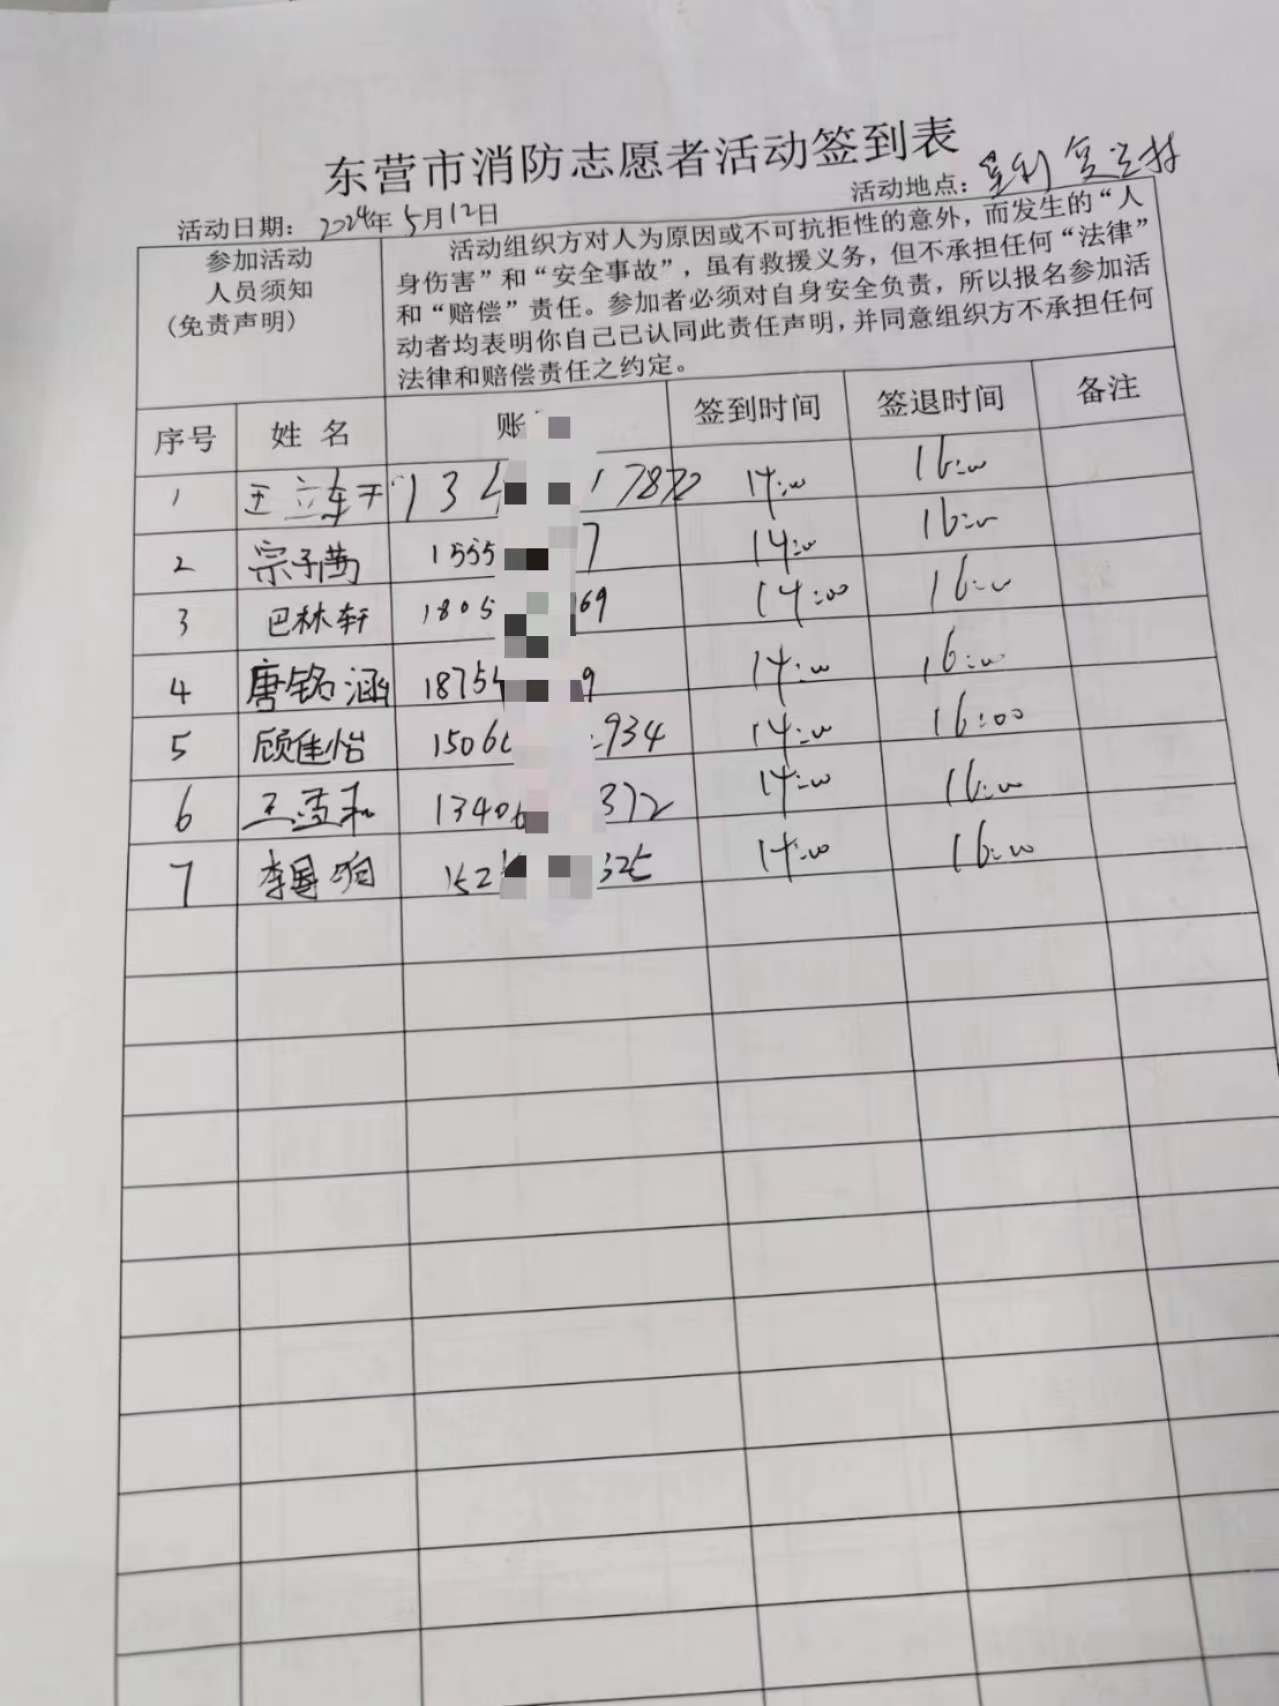 东营市消防志愿者活动签到表
活动日期：2024年5月12日 活动地点：
参加活动
人员须知
（免责声明）
活动组织方对人为原因或不可抗拒性的意外，而发生的“人
身伤害”和“安全事故”，虽有救援义务，但不承担任何“法律”
和“赔偿”责任。参加者必须对自身安全负责，所以报名参加活
动者均表明你自己已认同此责任声明，并同意组织方不承担任何
法律和赔偿责任之约定。
序号 姓名 账 签到时间 签退时间 备注
1 134 17872 14:00 16:00
2 宗子茜 1555 7 14:00 16:00
3 巴林轩 1805 69 14:00 16:00
4 唐铭涵 1875 9 14:00 16:00
5 顾佳怡 1506 934 14:00 16:00
6 王孟和 13406 372 14:00 16:00
7 152 325 14:00 16:00